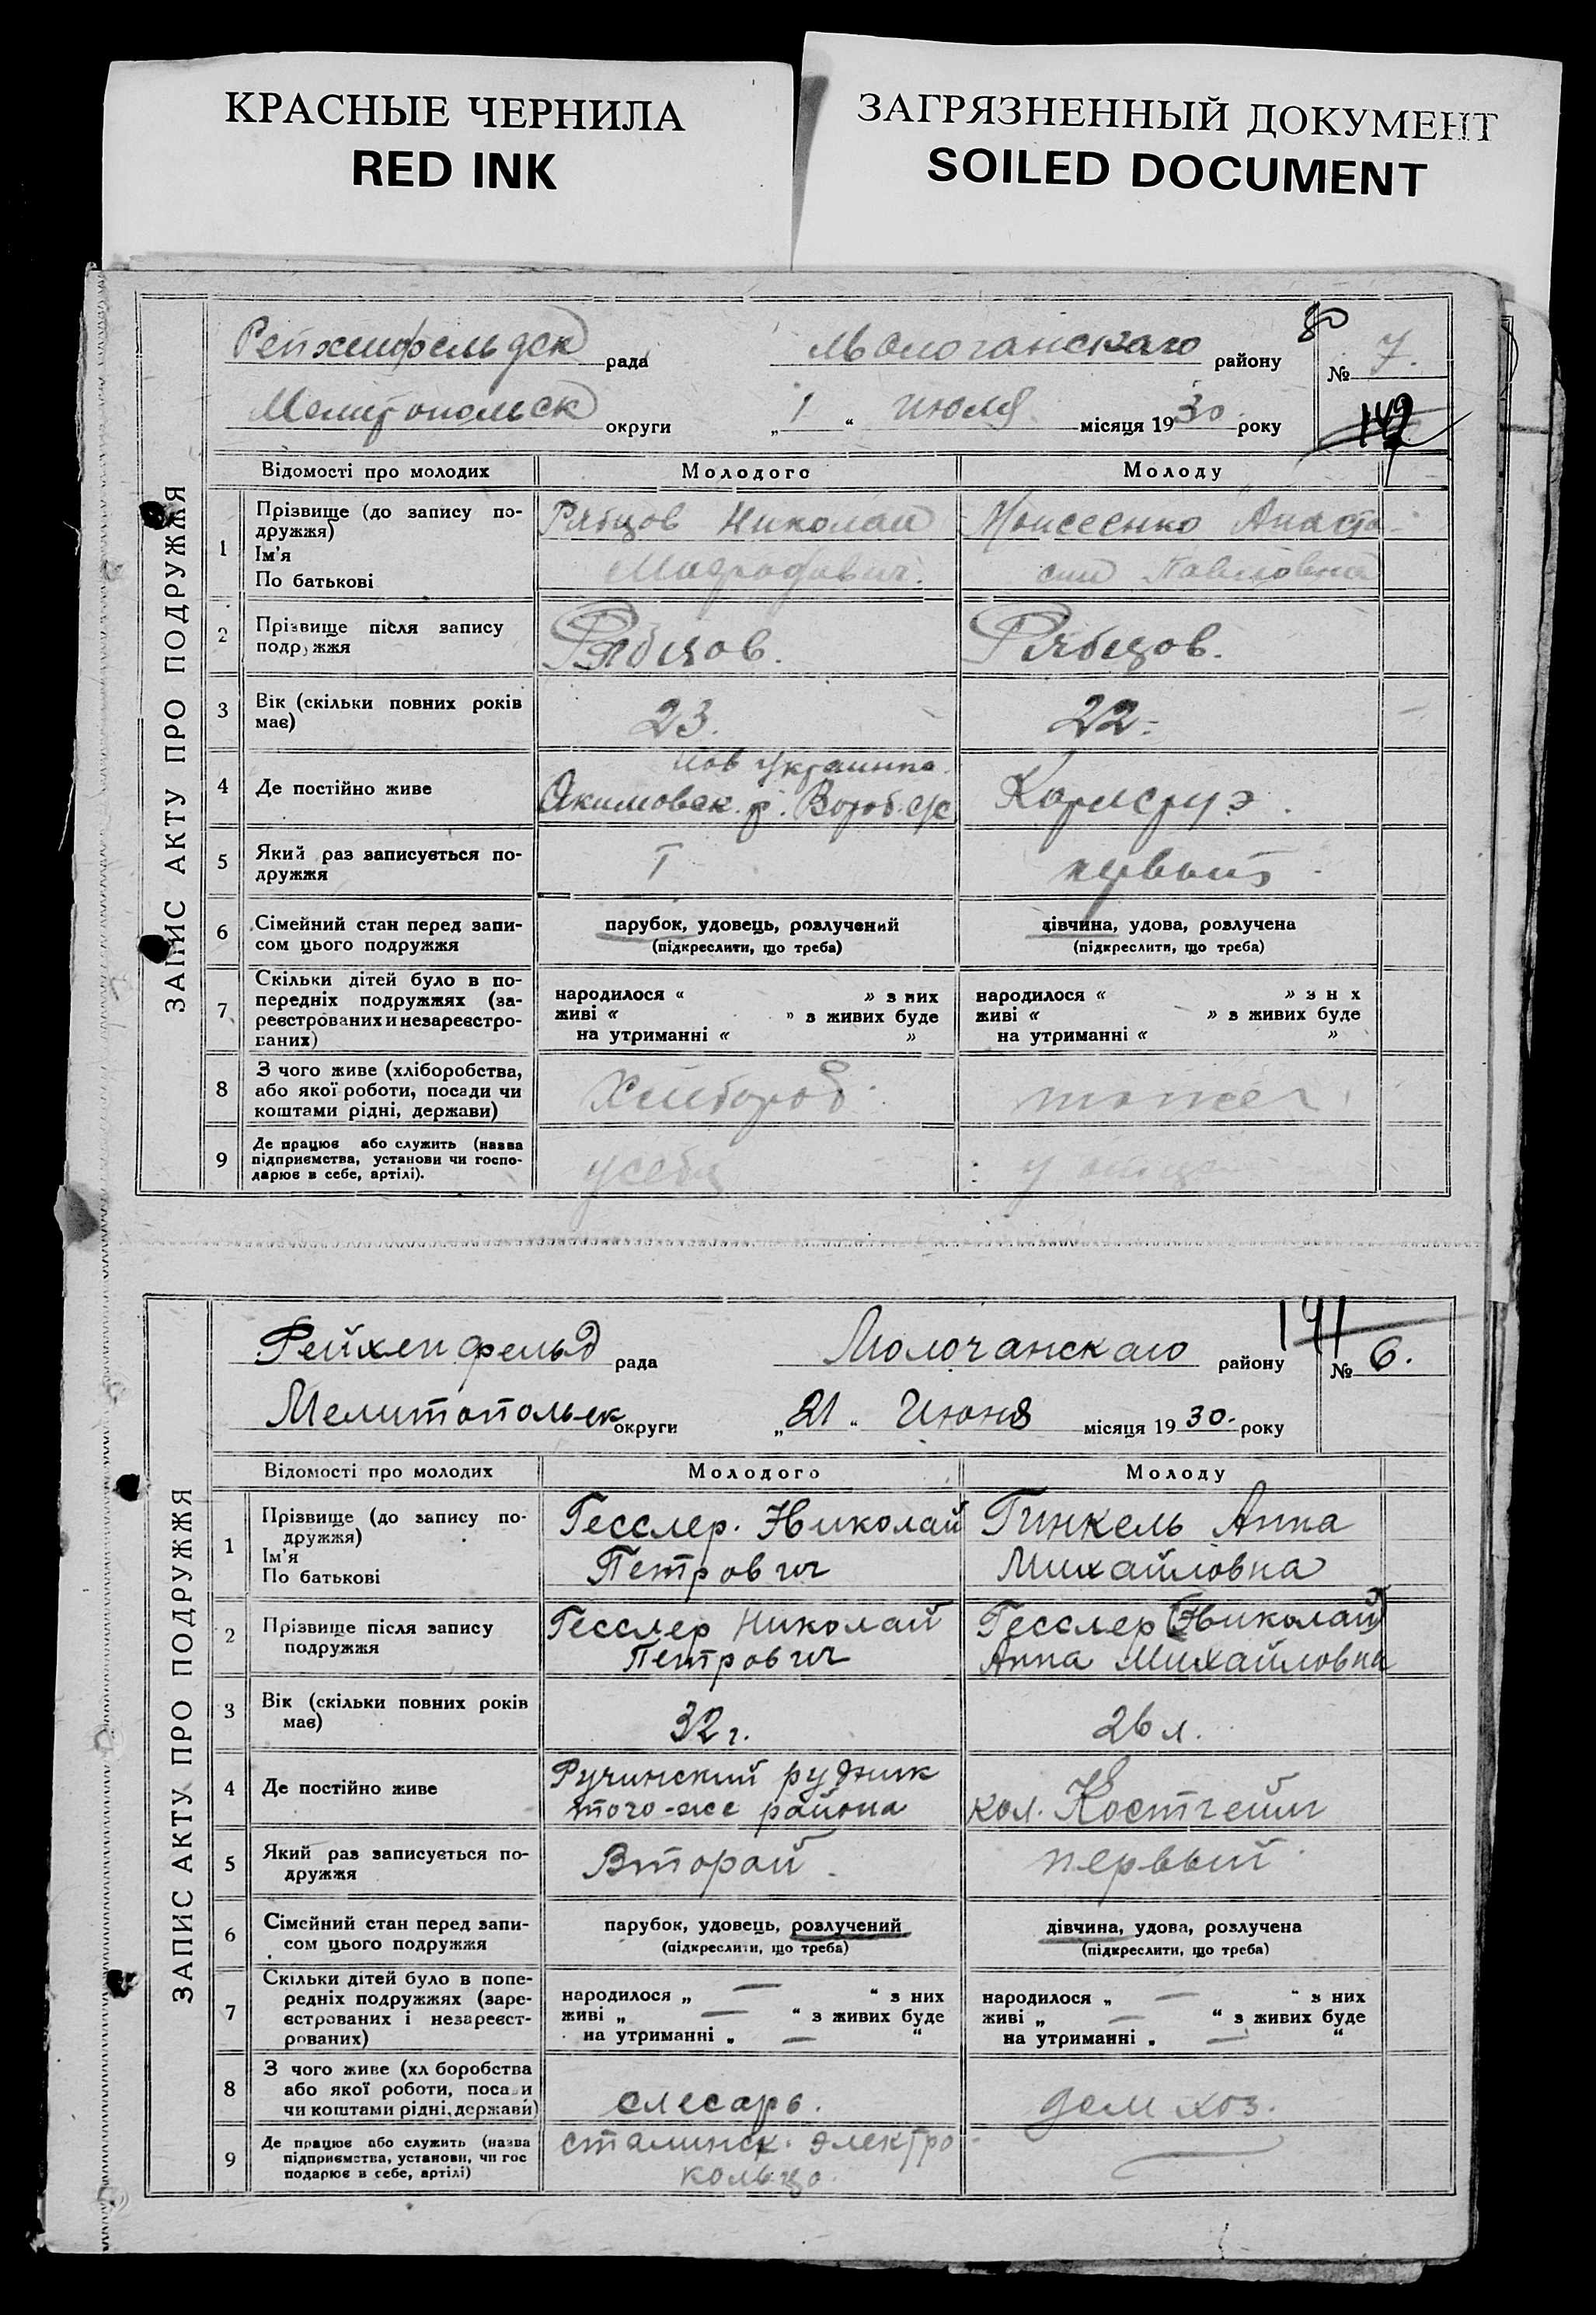 КРАСНЫЕ ЧЕРНИЛА
RED INK
ЗАГРЯЗНЕННЫЙ ДОКУМЕНТ
SOILED DOCUMENT
ЗАПИС АКТУ ПРО ПОДРУЖЖЯ
Рейхенфельдск рада Молочанскаго району № 7.
8
Мелитопольск округи „1“ июля місяця 1930 року
142
Відомості про молодих Молодого Молоду
1 Прізвище (до запису по-
дружжя)
Ім'я
По батькові
Рябцов Николай
Моисеенко Анаста-
сия Павловна
2 Прізвище після запису
подружжя
Рябцов.
Рябцов.
3 Вік (скільки повних років
має)
23.
22.
4 Де постійно живе
Акимовск. р. Вороб. с/с
Карлсруэ.
5 Який раз записується по-
дружжя
I
первый
6 Сімейний стан перед запи-
сом цього подружжя
парубок, удовець, розлучений
(підкреслити, що треба)
дівчина, удова, розлучена
(підкреслити, що треба)
7 Скільки дітей було в по-
передніх подружжях (за-
реєстрованих и незареєстро-
ваних)
народилося “ » з них
живі “ » з живих буде
на утриманні “ »
народилося “ » з н х
живі “ » з живих буде
на утриманні “ »
8 З чого живе (хліборобства,
або якої роботи, посади чи
коштами рідні, держави)
Хлебороб
тоже
9 Де працює або служить (назва
підприємства, установи чи госпо-
дарює в себе, артілі).
у себя
у отца
ЗАПИС АКТУ ПРО ПОДРУЖЖЯ
Рейхенфельд рада Молочанскаго району № 6.
141
Мелитопольск округи „21“ Июня місяця 1930. року
Відомості про молодих Молодого Молоду
1 Прізвище (до запису по-
дружжя)
Ім'я
По батькові
Гесслер. Николай
Петрович
Гинкель Анна
Михайловна
2 Прізвище після запису
подружжя
Гесслер Николай
Петрович
Гесслер (Николай)
Анна Михайловна
3 Вік (скільки повних років
має)
32 г.
26 л.
4 Де постійно живе
Ручинский рудник
того-же района
кол. Костгейм
5 Який раз записується по-
дружжя
Второй
первый
6 Сімейний стан перед запи-
сом цього подружжя
парубок, удовець, розлучений
(підкреслити, що треба)
дівчина, удова, розлучена
(підкреслити, що треба)
7 Скільки дітей було в попе-
редніх подружжях (заре-
єстрованих і незареєст-
рованих)
народилося „ — “ з них
живі „ — “ з живих буде
на утриманні „ — “
народилося „ — “ з них
живі „ — “ з живих буде
на утриманні „ — “
8 З чого живе (хл боробства
або якої роботи, посади
чи коштами рідні, держави)
слесарь.
дом хоз.
9 Де працює або служить (назва
підприємства, установи, чи гос
подарює в себе, артілі)
сталинск. электро
кольцо.
—